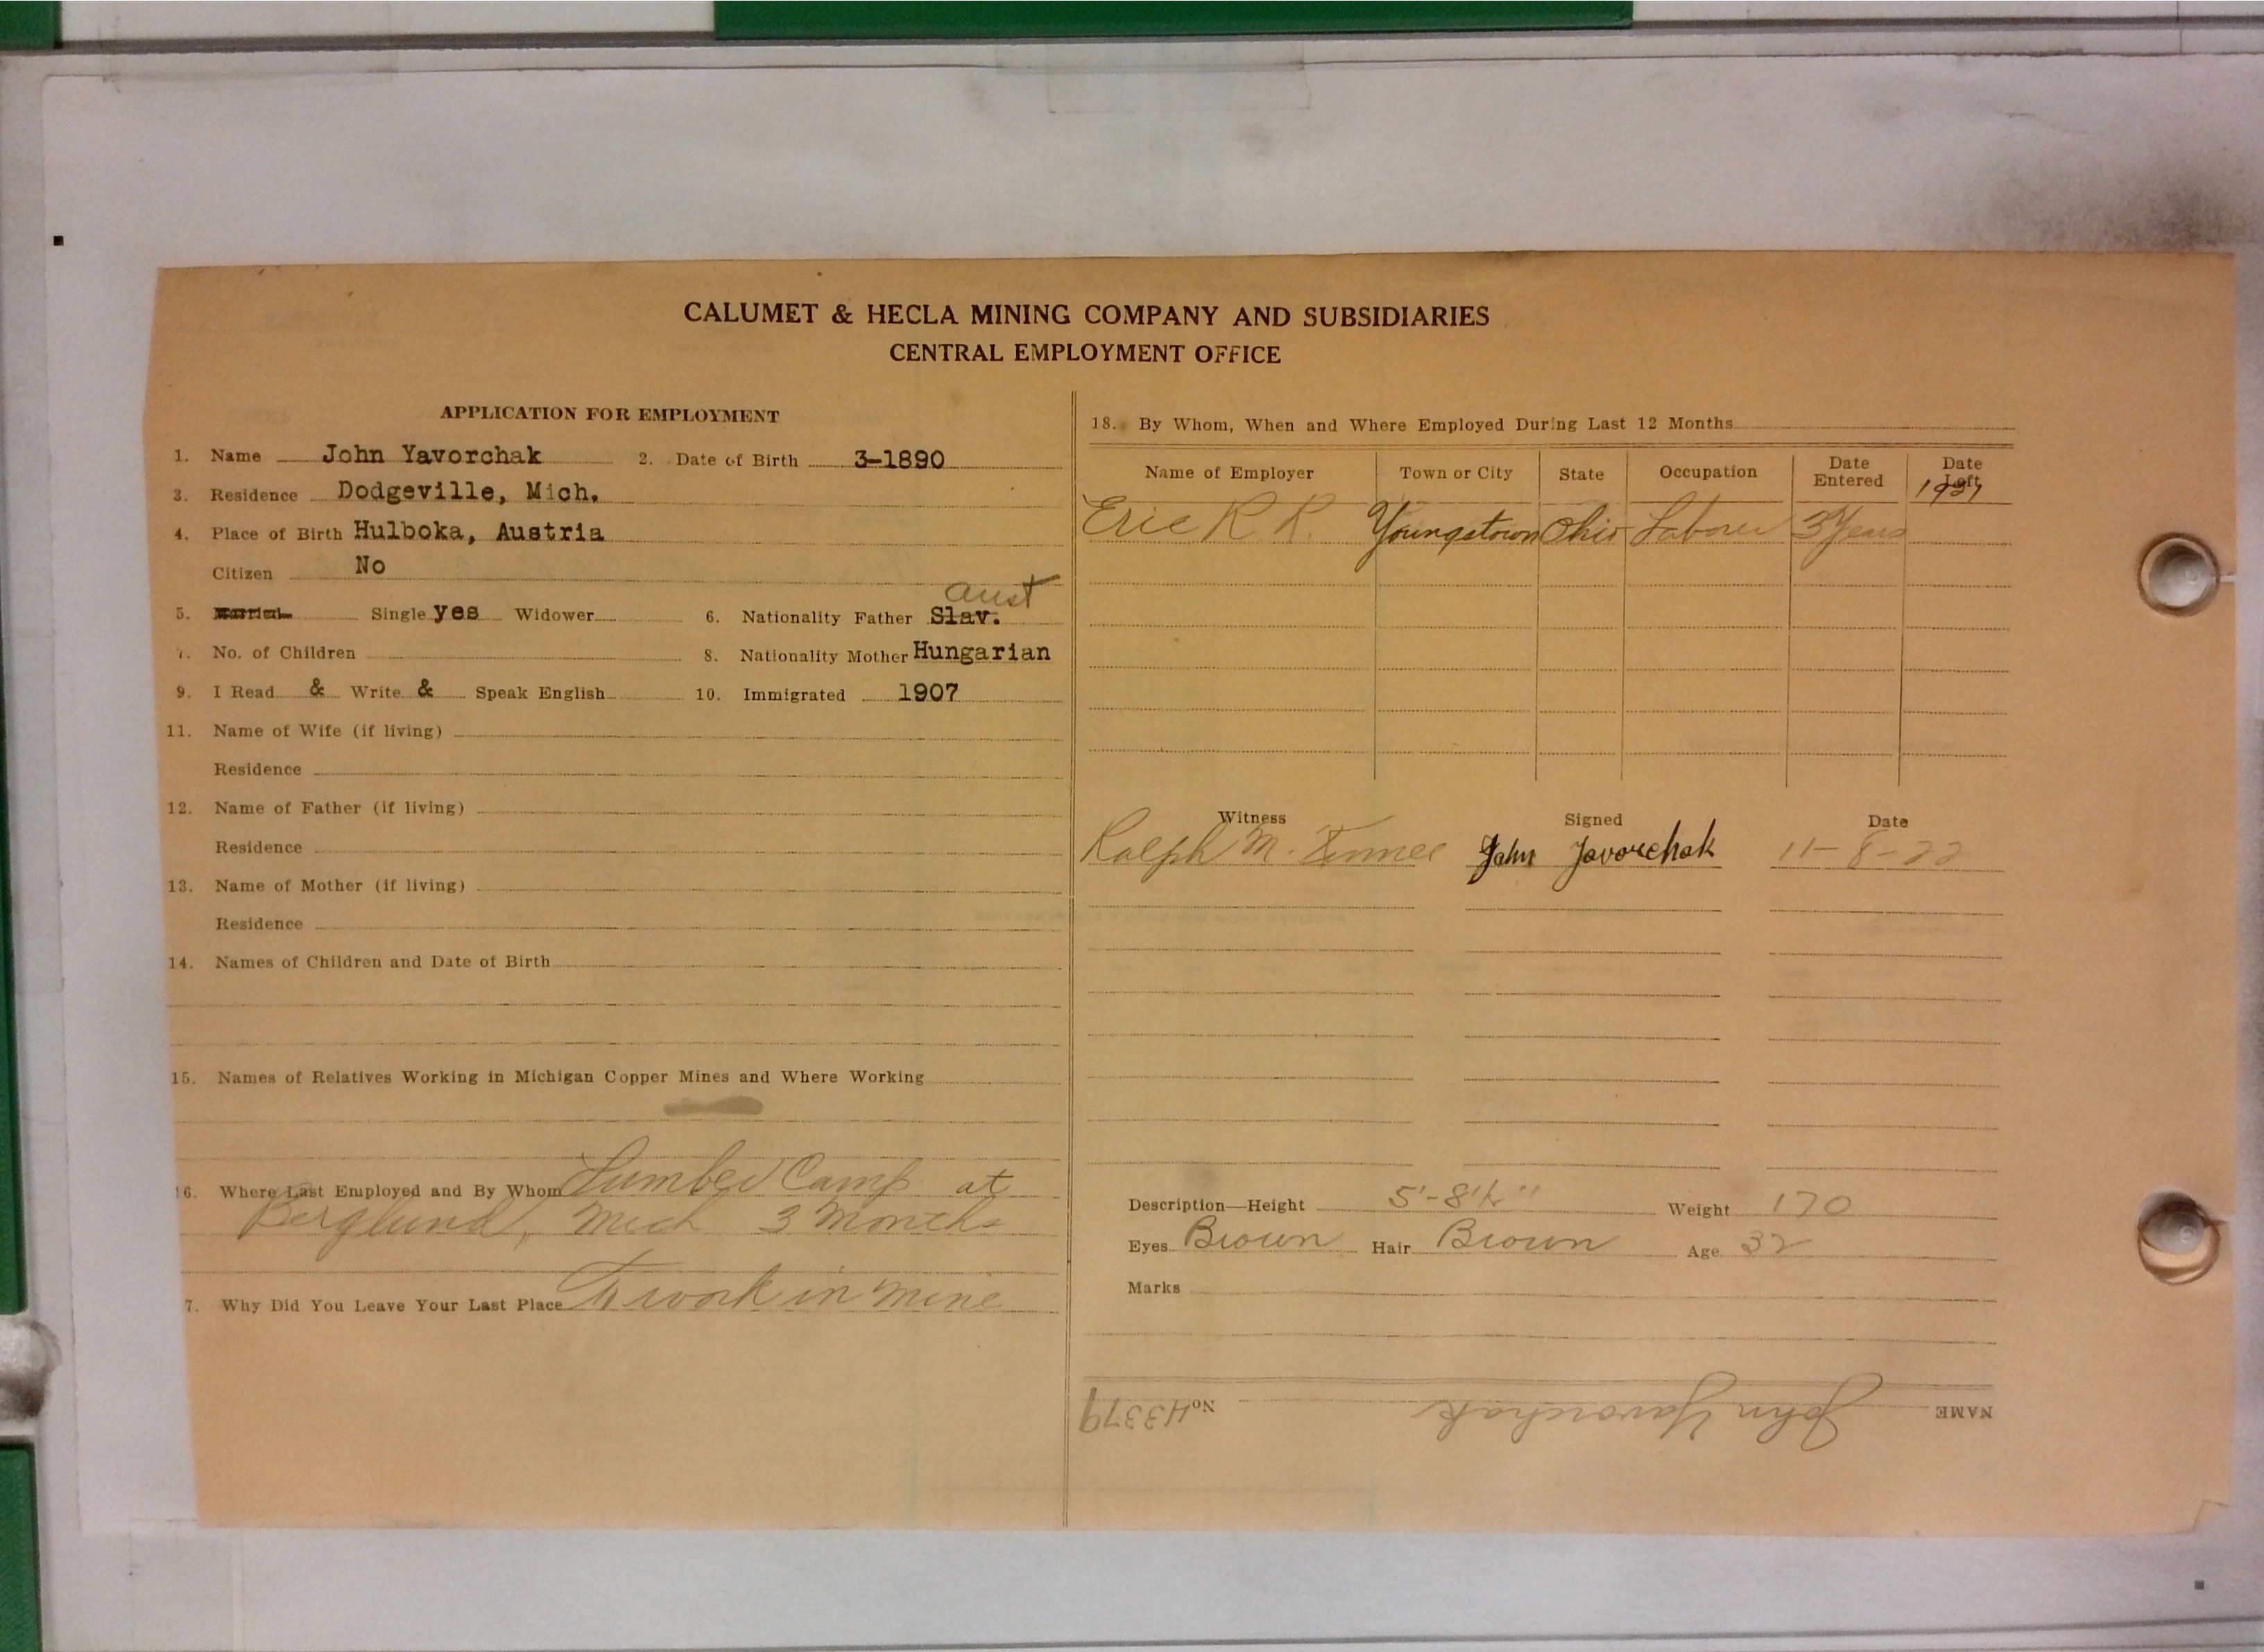 CALUMET & HECLA MINING COMPANY AND SUBSIDIARIES
CENTRAL EMPLOYMENT OFFICE
APPLICATION FOR EMPLOYMENT
1. Name John Yavorchak 2. Date of Birth 3-1890
3. Residence Dodgeville, Mich.
4. Place of Birth Hulboka, Austria
Citizen No
Aust
5. Married Single yes Widower 6. Nationality Father Slav.
7. No. of Children 8. Nationality Mother Hungarian
9. I Read & Write & Speak English 10. Immigrated 1907
11. Name of Wife (if living)
Residence
12. Name of Father (if living)
Residence
13. Name of Mother (if living)
Residence
14. Names of Children and Date of Birth
15. Names of Relatives Working in Michigan Copper Mines and Where Working
16. Where Last Employed and By Whom Lumber Camp at
Berglund, Mich 3 Months
7. Why Did You Leave Your Last Place To work in mine
18. By Whom, When and Where Employed During Last 12 Months
Name of Employer Town or City State Occupation Date Entered Date Left
1921
Erie R R. Youngstown Ohio Laborer 3 Years
Witness Signed Date
Ralph M. John Javorchak 11-8-22
Description—Height 5'-8½" Weight 170
Eyes Brown Hair Brown Age 32
Marks
NAME John Yavorchak No. H3379